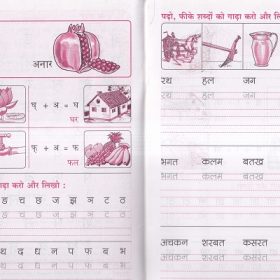 अनार
घ् + अ = घ
घर
फ् + अ = फ
फल
गाढ़ा करो और लिखो :
ङ च छ ज झ ञ ट ठ
थ द ध न प फ ब भ
पढ़ो, फीके शब्दों को गाढ़ा करो और
रथ हल जग
रथ हल जग
भगत कलम बतख
भगत कलम बतख
अचकन शरबत कसरत
अचकन शरबत कसरत